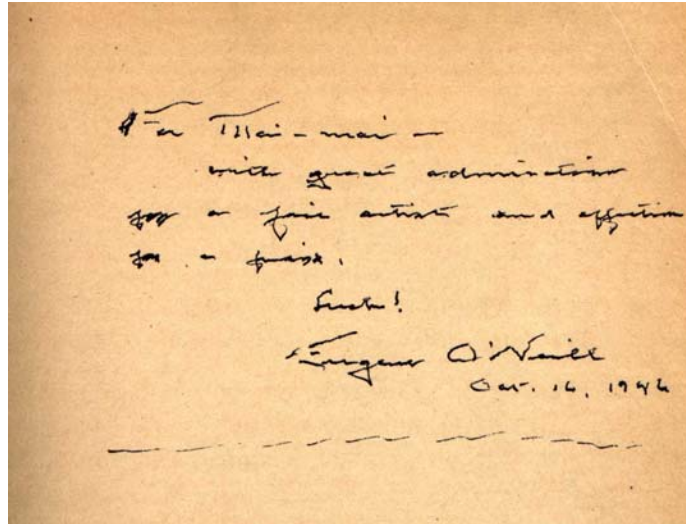 For Mai-mai —
with great admiration
for a fine artist and affection
for a friend.
Luck!
Eugene O'Neill
Oct. 16, 1946